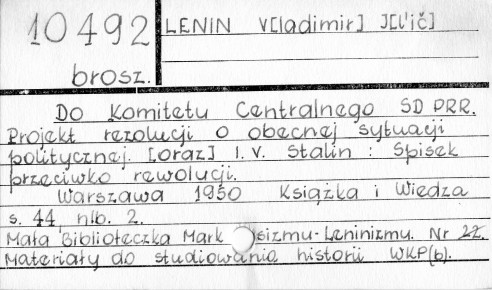 10492
brosz.
LENIN V[ladimir] J[l'ič]
Do Komitetu Centralnego SD PRR.
Projekt rezolucji o obecnej sytuacji
politycznej. [oraz] I. V. Stalin : Spisek
przeciwko rewolucji.
Warszawa 1950 Książka i Wiedza
s. 44, nlb. 2.
Mała Biblioteczka Mark sizmu-Leninizmu. Nr 22.
Materiały do studiowania historii WKP(b).